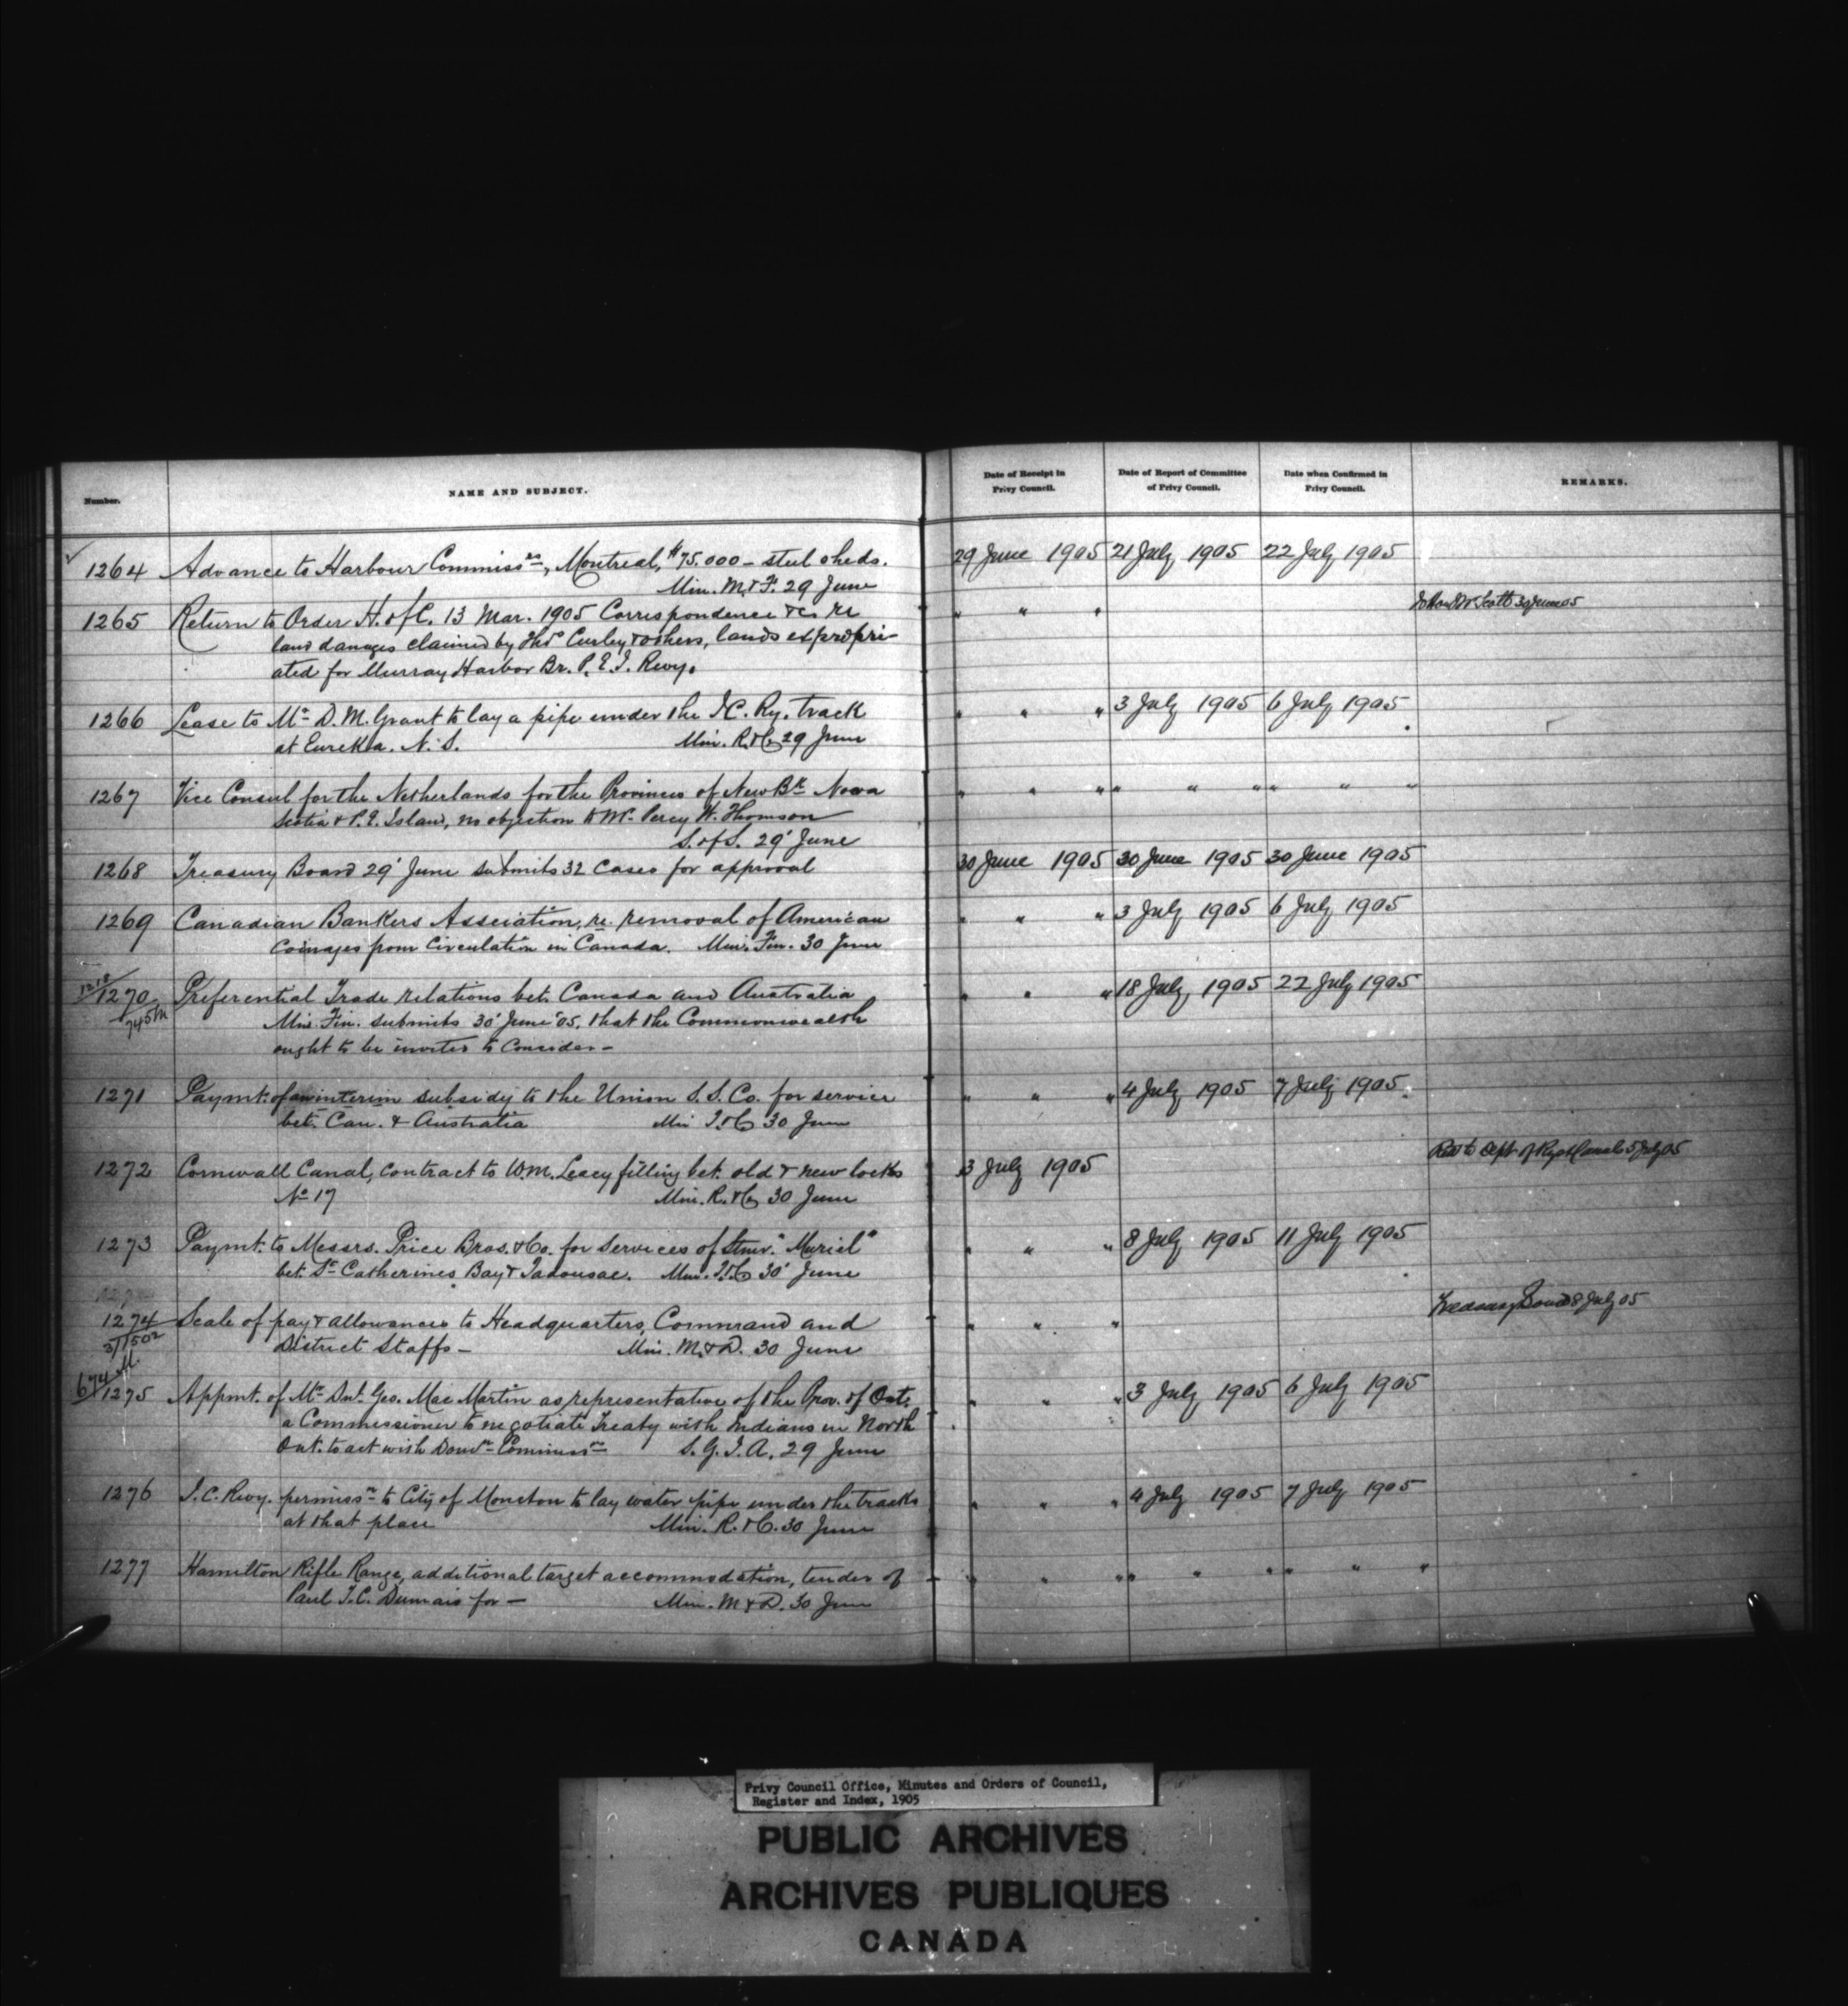 Number. NAME AND SUBJECT. Date of Receipt in Privy Council. Date of Report of Committee of Privy Council. Date when Confirmed in Privy Council. REMARKS.
1264 Advance to Harbour Commissrs, Montreal, $75.000 – steel sheds. 29 June 1905 21 July 1905 22 July 1905
Min. M. & F. 29 June
1265 Return to Order H. of C. 13 Mar. 1905 Correspondence &c. re " " " Scott 30 June 05
land damages claimed by Thos Curley & others, lands expropri-
ated for Murray Harbor Br. P. E. I. Rwy.
1266 Lease to Mr D. M. Grant to lay a pipe under the I.C. Ry. track " " " 3 July 1905 6 July 1905
at Eureka. N. S. Min. R. & C. 29 June
1267 Vice Consul for the Netherlands for the Provinces of New Bk Nova " " " " " " " " "
Scotia & P. E. Island, no objection to Mr Percy W. Thomson
S. of S. 29' June
1268 Treasury Board 29' June submits 32 cases for approval 30 June 1905 30 June 1905 30 June 1905
1269 Canadian Bankers Association, re. removal of American " " " 3 July 1905 6 July 1905
coinages from circulation in Canada. Min. Fin. 30 June
1270 Preferential Trade relations bet. Canada and Australia " " " 18 July 1905 22 July 1905
745M Min. Fin. submits 30' June '05, that the Commonwealth
ought to be invited to consider –
1271 Paymt. of an interim subsidy to the Union S. S. Co. for service " " " 4 July 1905 7 July 1905
bet. Can. & Australia Min T. & C 30 June
1272 Cornwall Canal, contract to W. M. Leacy filling bet. old & new locks 3 July 1905 to Dept of Rys & Canals 5 July 05
No 17 Min. R. & C. 30 June
1273 Paymt. to Messrs. Price Bros. & Co. for services of Stmr. "Muriel" " " " 8 July 1905 11 July 1905
bet. St Catherines Bay & Tadousac. Min. T. & C 30' June
1274 Scale of pay & allowances to Headquarters, Command and " " " Treasury Board 8 July 05
District Staffs – Min. M. & D. 30 June
674
1275 Appmt. of Mr Geo. Mac Martin as representative of the Prov. of Ont. " " " 3 July 1905 6 July 1905
a Commissioner to negotiate Treaty with Indians in North
Ont. to act with Domn Commissrs S. G. I. A. 29 June
1276 I. C. Rwy. permissn to City of Moncton to lay water pipe under the tracks " " " 4 July 1905 7 July 1905
at that place Min. R. & C. 30 June
1277 Hamilton Rifle Range, additional target accommodation, tender of " " " " " " " " "
Paul T. C. Dumais for – Min. M & D. 30 June
Privy Council Office, Minutes and Orders of Council,
Register and Index, 1905
PUBLIC ARCHIVES
ARCHIVES PUBLIQUES
CANADA